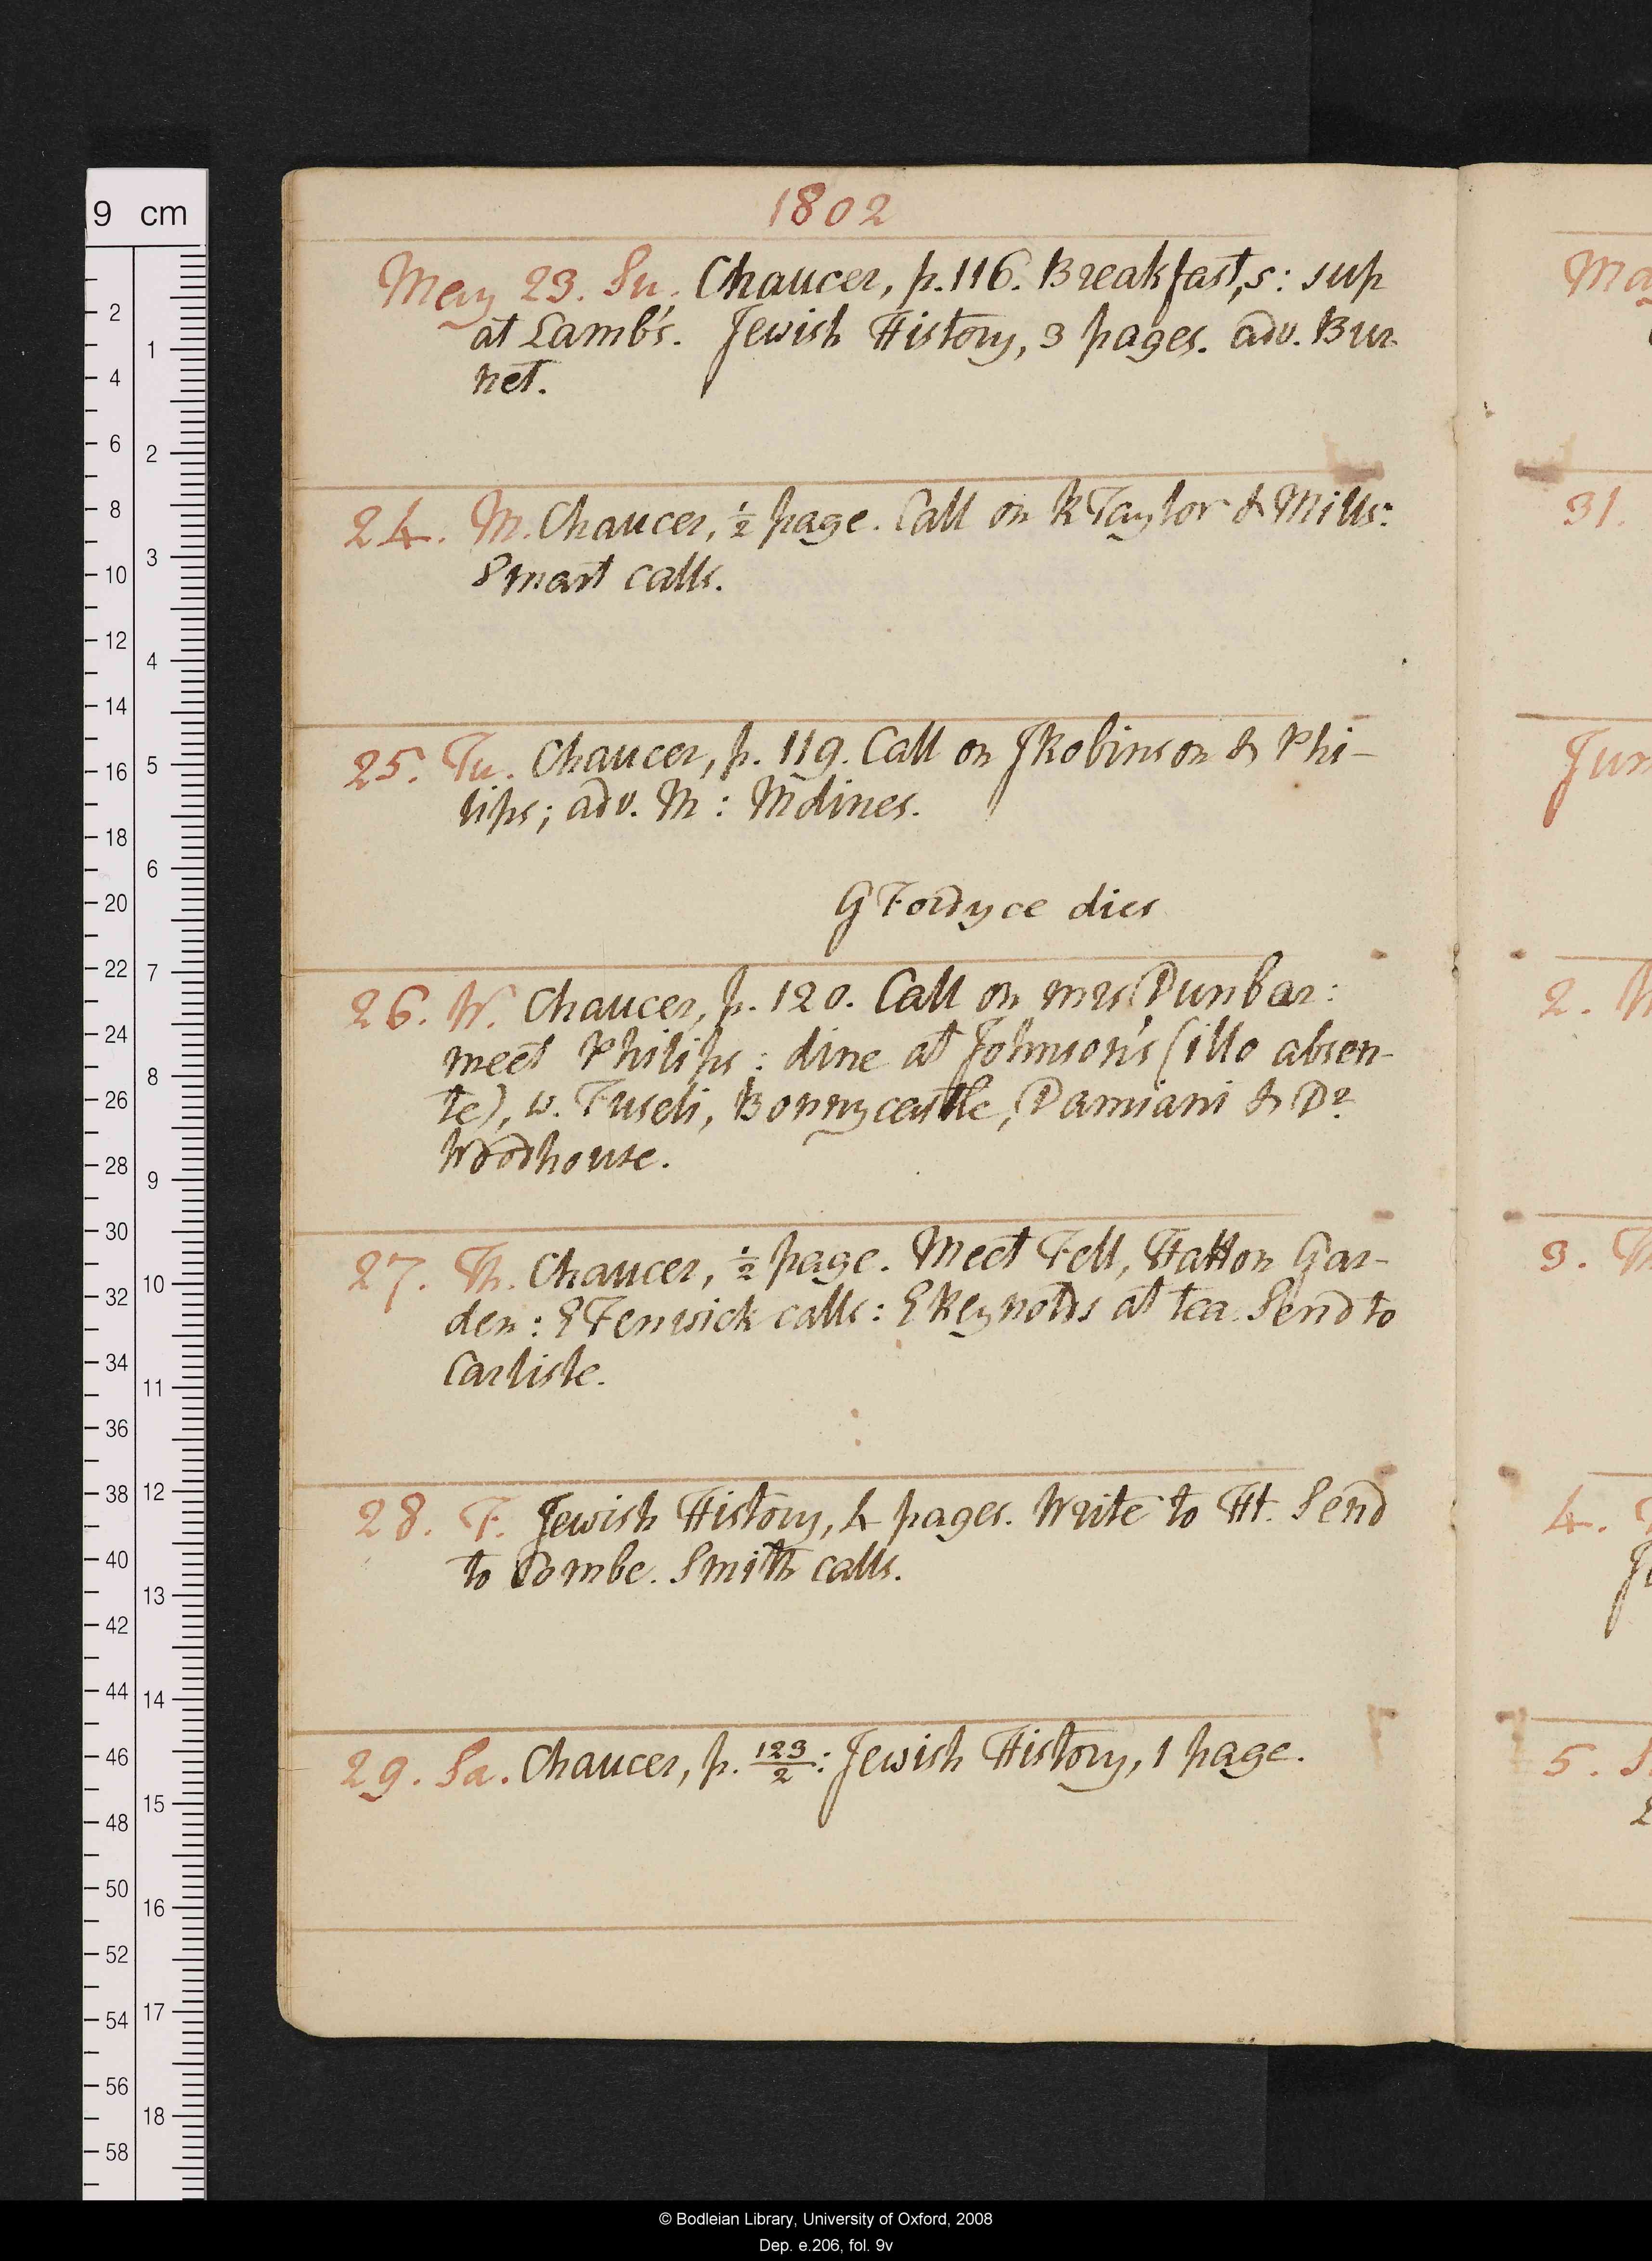 1802
May 23. Su. Chaucer, p. 116. Breakfast, s: sup
at Lamb's. Jewish History, 3 pages. adv. Bur-
net.
24. M. Chaucer, ½ page. Call on R Taylor & Mills:
Smart calls.
25. Tu. Chaucer, p. 119. Call on J Robinson & Phi-
lips; adv. M: M dines.
G Fordyce dies
26. W. Chaucer, p. 120. Call on mrs Dunbar:
meet Philips: dine at Johnson's (illo absen-
te), w. Fuseli, Bonnycastle, Damiani & Dr
Woodhouse.
27. Th. Chaucer, ½ page. Meet Fell, Hatton Gar-
den: E Fenwick calls: E Reynolds at tea. Send to
Carlisle.
28. F. Jewish History, 4 pages. Write to Ht. Send
to Combe. Smith calls.
29. Sa. Chaucer, p. 123/2: Jewish History, 1 page.
31.
2.
3.
4.
5.
9 cm
2 4 6 8 10 12 14 16 18 20 22 24 26 28 30 32 34 36 38 40 42 44 46 48 50 52 54 56 58
1 2 3 4 5 6 7 8 9 10 11 12 13 14 15 16 17 18
© Bodleian Library, University of Oxford, 2008
Dep. e.206, fol. 9v